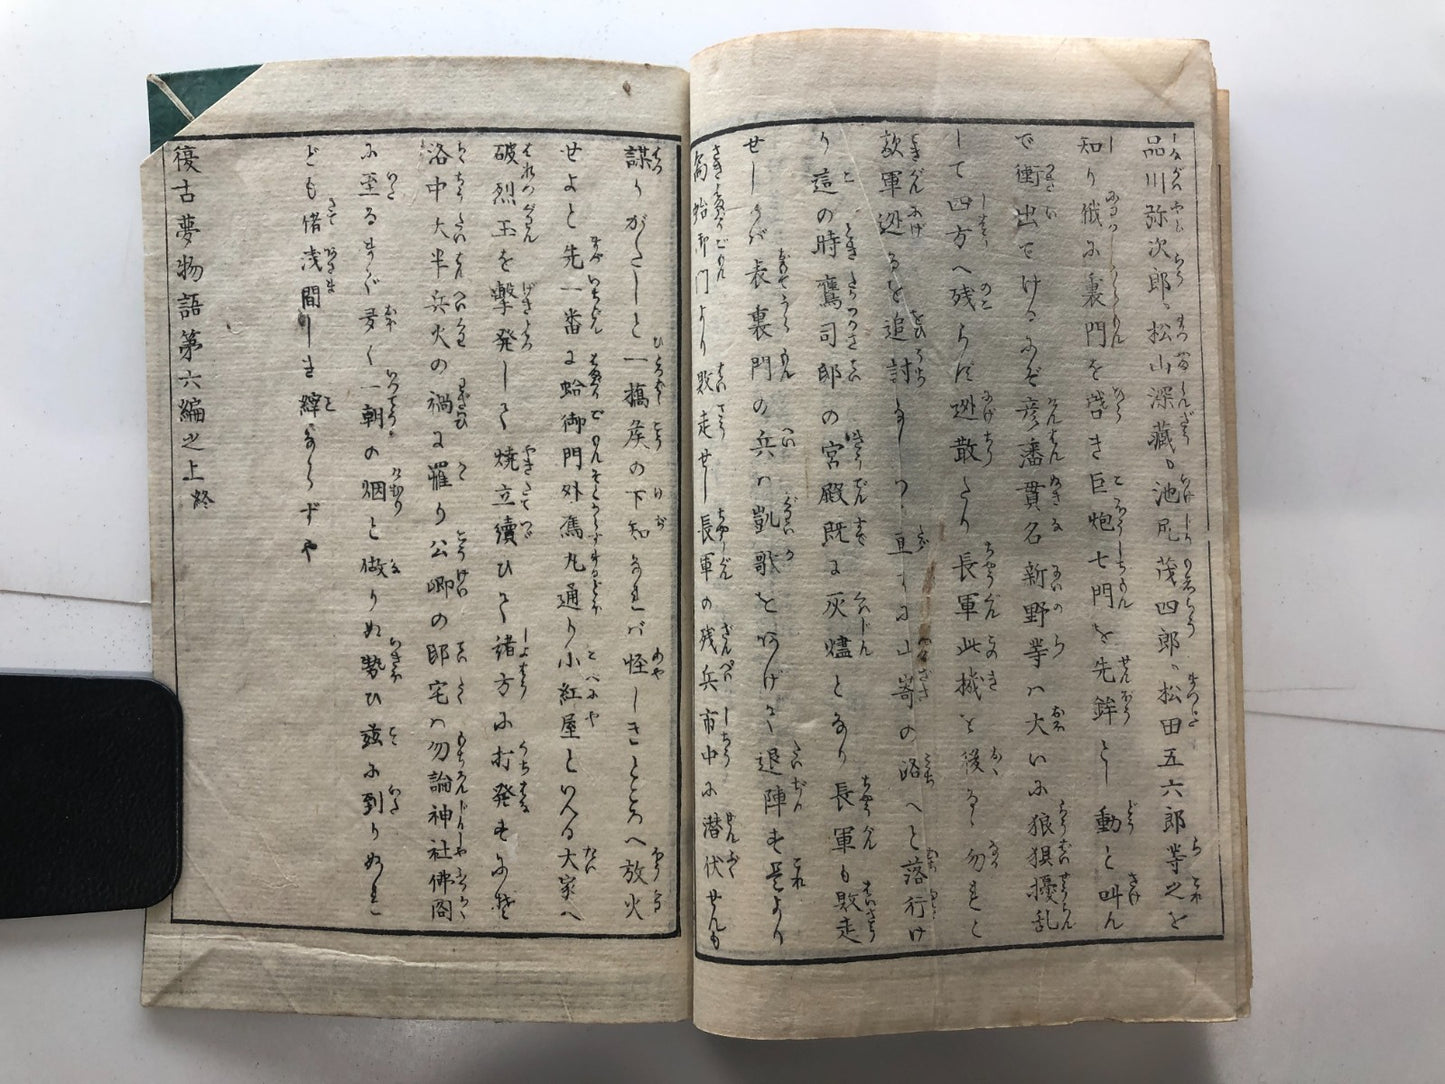 品川弥次郎、松山深藏、池尻茂四郎、松田五六郎等之を
知り俄に裏門を啓き巨炮七門を先鉾とし動と叫ん
で衝出でけるにぞ彦藩貫名新野等ハ大いに狼狽擾乱
して四方へ残らず迯散たり長軍此機を後るゝ勿れと
敵軍迯るを追討なしつゝ直に山嵜の路へと落行け
り這の時鷹司邸の宮殿既に灰燼となり長軍も敗走
せしかバ表裏門の兵ハ凱歌をあげて退陣す是より
嚮蛤御門より敗走せし長軍の残兵市中に潜伏せんも
謀りがたしと一橋侯の下知なれバ怪しきところへ放火
せよと先一番に蛤御門外烏丸通り小紅屋といへる大家へ
破烈玉を撃発して焼立續ひて諸方に打発すにぞ
洛中大半兵火の禍に罹り公卿の邸宅ハ勿論神社佛閣
に至るまで多く一朝の烟と做りぬ勢ひ茲に到りぬれ
ども偖浅間しき縡ならずや
復古夢物語第六編之上終